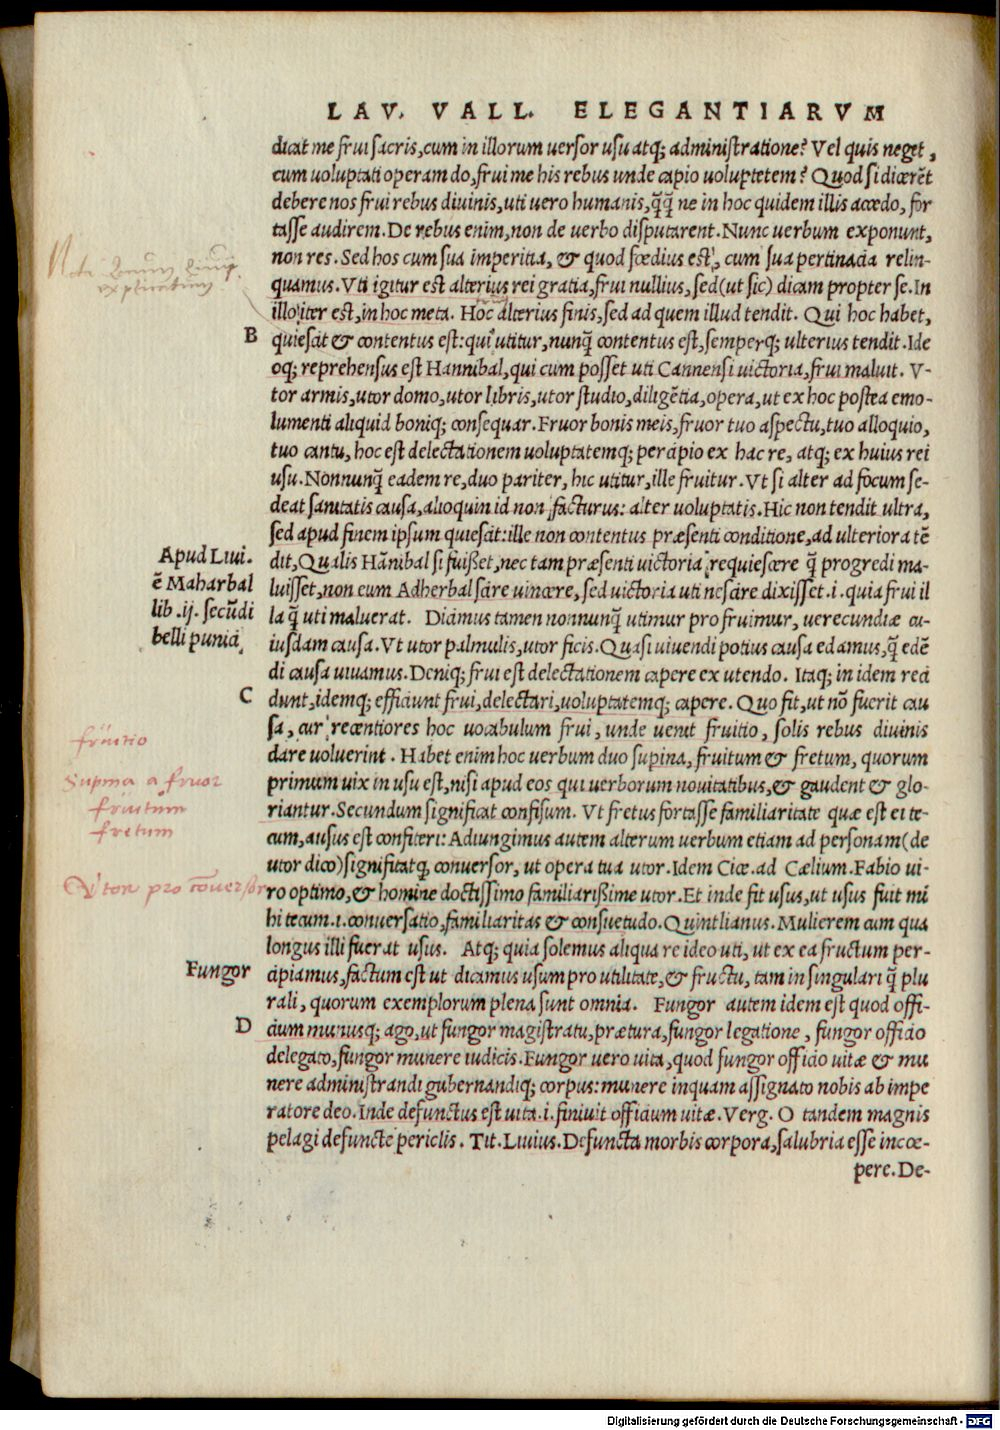 LAV. VALL. ELEGANTIARVM
dicat me frui sacris, cum in illorum uersor usu atq; administratione? Vel quis neget,
cum uoluptati operam do, frui me his rebus unde capio uoluptetem? Quod si dicerẽt
debere nos frui rebus diuinis, uti uero humanis, q̃q̃ ne in hoc quidem illis accedo, for
tasse audirem. De rebus enim, non de uerbo disputarent. Nunc uerbum exponunt,
non res. Sed hos cum sua imperitia, & quod fœdius est, cum sua pertinacia relin-
quamus. Vti igitur est alterius rei gratia, frui nullius, sed (ut sic) dicam propter se. In
illo iter est, in hoc meta. Hoc alterius finis, sed ad quem illud tendit. Qui hoc habet,
B
quiescit & contentus est: qui utitur, nunq̃ contentus est, semperq; ulterius tendit. Ide
oq; reprehensus est Hannibal, qui cum posset uti Cannensi uictoria, frui maluit. V-
tor armis, utor domo, utor libris, utor studio, diligẽtia, opera, ut ex hoc postea emo-
lumenti aliquid boniq; consequar. Fruor bonis meis, fruor tuo aspectu, tuo alloquio,
tuo cantu, hoc est delectationem uoluptatemq; percipio ex hac re, atq; ex huius rei
usu. Nonnunq̃ eadem re, duo pariter, hic utitur, ille fruitur. Vt si alter ad focum se-
deat sanitatis causa, alioquin id non facturus: alter uoluptatis. Hic non tendit ultra,
sed apud finem ipsum quiescit: ille non contentus præsenti conditione, ad ulteriora tẽ
Apud Liui.
ẽ Maharbal
lib .ij. secũdi
belli punici.
dit, Qualis Hãnibal si fuisset, nec tam præsenti uictoria requiescere q̃ progredi ma-
luisset, non eum Adherbal scire uincere, sed uictoria uti nescire dixisset .i. quia frui il
la q̃ uti maluerat. Dicimus tamen nonnunq̃ utimur pro fruimur, uerecundiæ cu-
iusdam causa. Vt utor palmulis, utor ficis. Quasi uiuendi potius causa edamus, q̃ edẽ
di causa uiuamus. Deniq; frui est delectationem capere ex utendo. Itaq; in idem reci
C
dunt, idemq; efficiunt frui, delectari, uoluptatemq; capere. Quo fit, ut nõ fuerit cau
sa, cur recentiores hoc uocabulum frui, unde uenit fruitio, solis rebus diuinis
fruitio
dare uoluerint. Habet enim hoc uerbum duo supina, fruitum & fretum, quorum
Supina a fruor
fruitum
fretum
primum uix in usu est, nisi apud eos qui uerborum nouitatibus, & gaudent & glo-
riantur. Secundum significat confisum. Vt fretus fortasse familiaritate quæ est ei te-
cum, ausus est confiteri: Adiungimus autem alterum uerbum etiam ad personam (de
utor dico) significatq, conuersor, ut opera tua utor. Idem Cice. ad Cælium. Fabio ui-
Utor pro cõuersor
ro optimo, & homine doctissimo familiarissime utor. Et inde fit usus, ut usus fuit mi
hi tecum .i. conuersatio, familiaritas & consuetudo. Quintlianus. Mulierem cum qua
longus illi fuerat usus. Atq; quia solemus aliqua re ideo uti, ut ex ea fructum per-
Fungor
cipiamus, factum est ut dicamus usum pro utilitate, & fructu, tam in singulari q̃ plu
rali, quorum exemplorum plena sunt omnia. Fungor autem idem est quod offi-
D
cium munusq; ago, ut fungor magistratu, prætura, fungor legatione, fungor officio
delegato, fungor munere iudicis. Fungor uero uita, quod fungor officio uitæ & mu
nere administrandi gubernandiq; corpus: munere inquam assignato nobis ab impe
ratore deo. Inde defunctus est uita .i. finiuit officium uitæ. Verg. O tandem magnis
pelagi defuncte periclis. Tit. Liuius. Defuncta morbis corpora, salubria esse incœ-
pere. De-
Digitalisierung gefördert durch die Deutsche Forschungsgemeinschaft - DFG